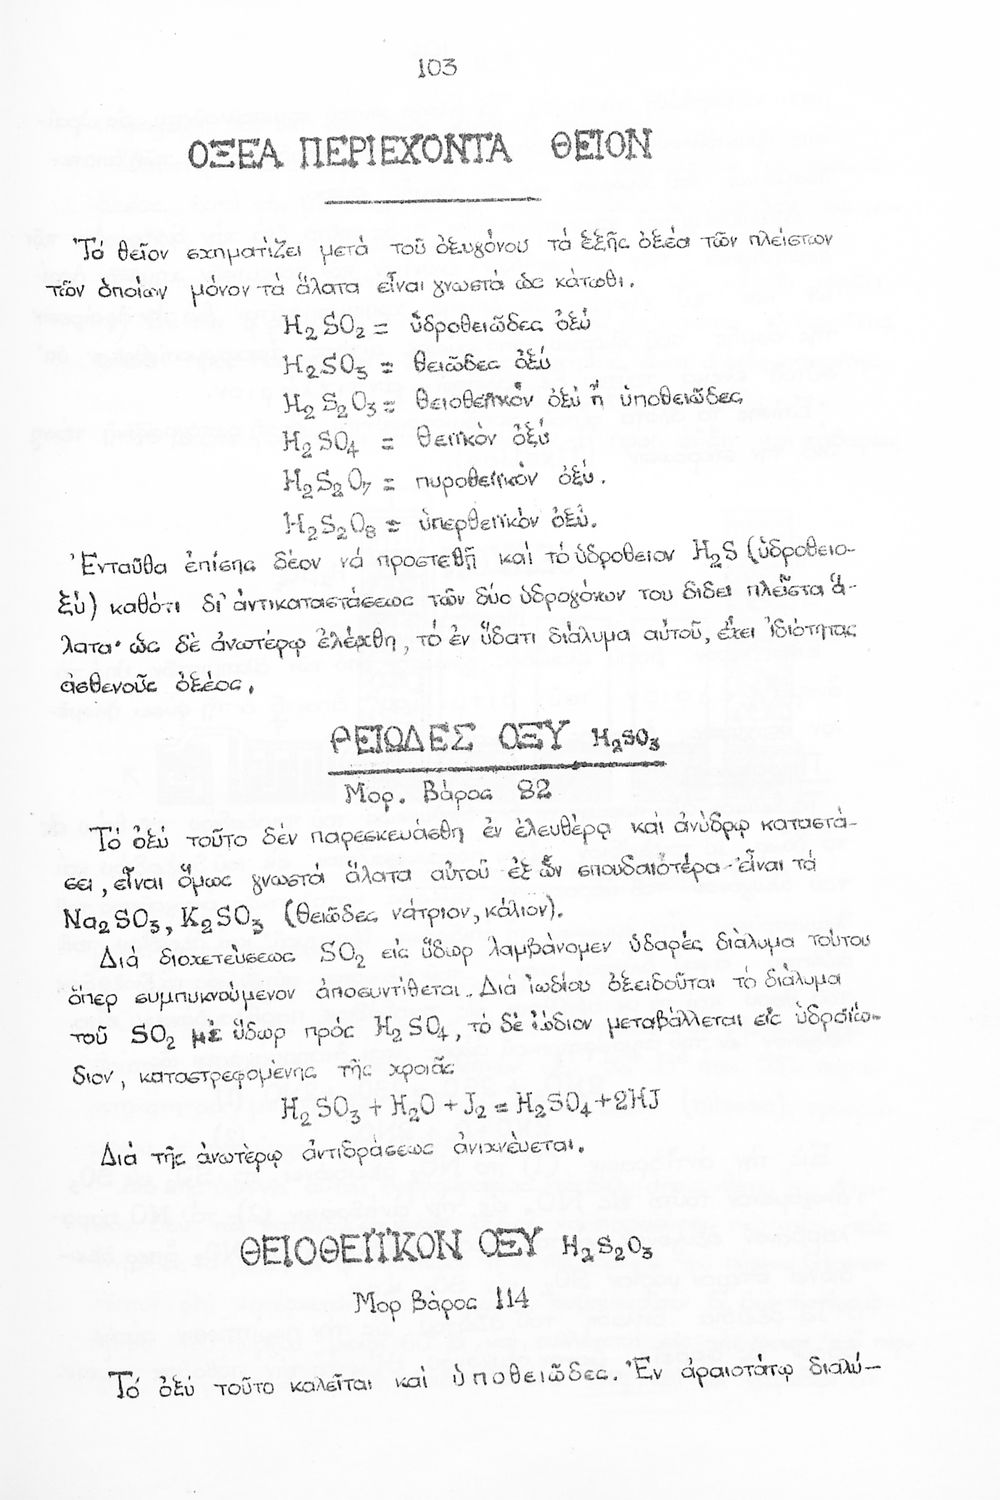 103
ΟΞΕΑ ΠΕΡΙΕΧΟΝΤΑ ΘΕΙΟΝ
Τό θεῖον σχηματίζει μετά τοῦ ὀξυγόνου τά ἑξῆς ὀξέα τῶν πλείστων
τῶν ὁποίων μόνον τά ἅλατα εἶναι γνωστά ὡς κάτωθι.
H₂SO₂ = ὑδροθειῶδες ὀξύ
H₂SO₃ = θειῶδες ὀξύ
H₂S₂O₃ = θειοθειϊκόν ὀξύ ἤ ὑποθειῶδες
H₂SO₄ = θειϊκόν ὀξύ
H₂S₂O₇ = πυροθειϊκόν ὀξύ.
H₂S₂O₈ = ὑπερθειϊκόν ὀξύ.
Ἐνταῦθα ἐπίσης δέον νά προστεθῇ καί τό ὑδροθειον H₂S (ὑδροθειο-
ξύ) καθότι δι' ἀντικαταστάσεως τῶν δύο ὑδρογόνων του δίδει πλεῖστα ἅ-
λατα· ὡς δέ ἀνωτέρω ἐλέχθη, τό ἐν ὕδατι διάλυμα αὐτοῦ, ἔχει ἰδιότητας
ἀσθενοῦς ὀξέος.
ΘΕΙΩΔΕΣ ΟΞΥ H₂SO₃
Μορ. Βάρος 82
Τό ὀξύ τοῦτο δέν παρεσκευάσθη ἐν ἐλευθέρᾳ καί ἀνύδρῳ καταστά-
σει, εἶναι ὅμως γνωστά ἅλατα αὐτοῦ ἐξ ὧν σπουδαιότερα εἶναι τά
Na₂SO₃, K₂SO₃ (θειῶδες νάτριον, κάλιον).
Διά διοχετεύσεως SO₂ εἰς ὕδωρ λαμβάνομεν ὑδαρές διάλυμα τούτου
ὅπερ συμπυκνούμενον ἀποσυντίθεται. Διά ἰωδίου ὀξειδοῦται τό διάλυμα
τοῦ SO₂ μέ ὕδωρ πρός H₂SO₄, τό δέ ἰώδιον μεταβάλλεται εἰς ὑδροϊώ-
διον, καταστρεφομένης τῆς χροιᾶς
H₂SO₃ + H₂O + J₂ = H₂SO₄ + 2HJ
Διά τῆς ἀνωτέρῳ ἀντιδράσεως ἀνιχνεύεται.
ΘΕΙΟΘΕΙΪΚΟΝ ΟΞΥ H₂S₂O₃
Μορ Βάρος 114
Τό ὀξύ τοῦτο καλεῖται καί ὑποθειῶδες. Ἐν ἀραιοτάτῳ διαλύ-